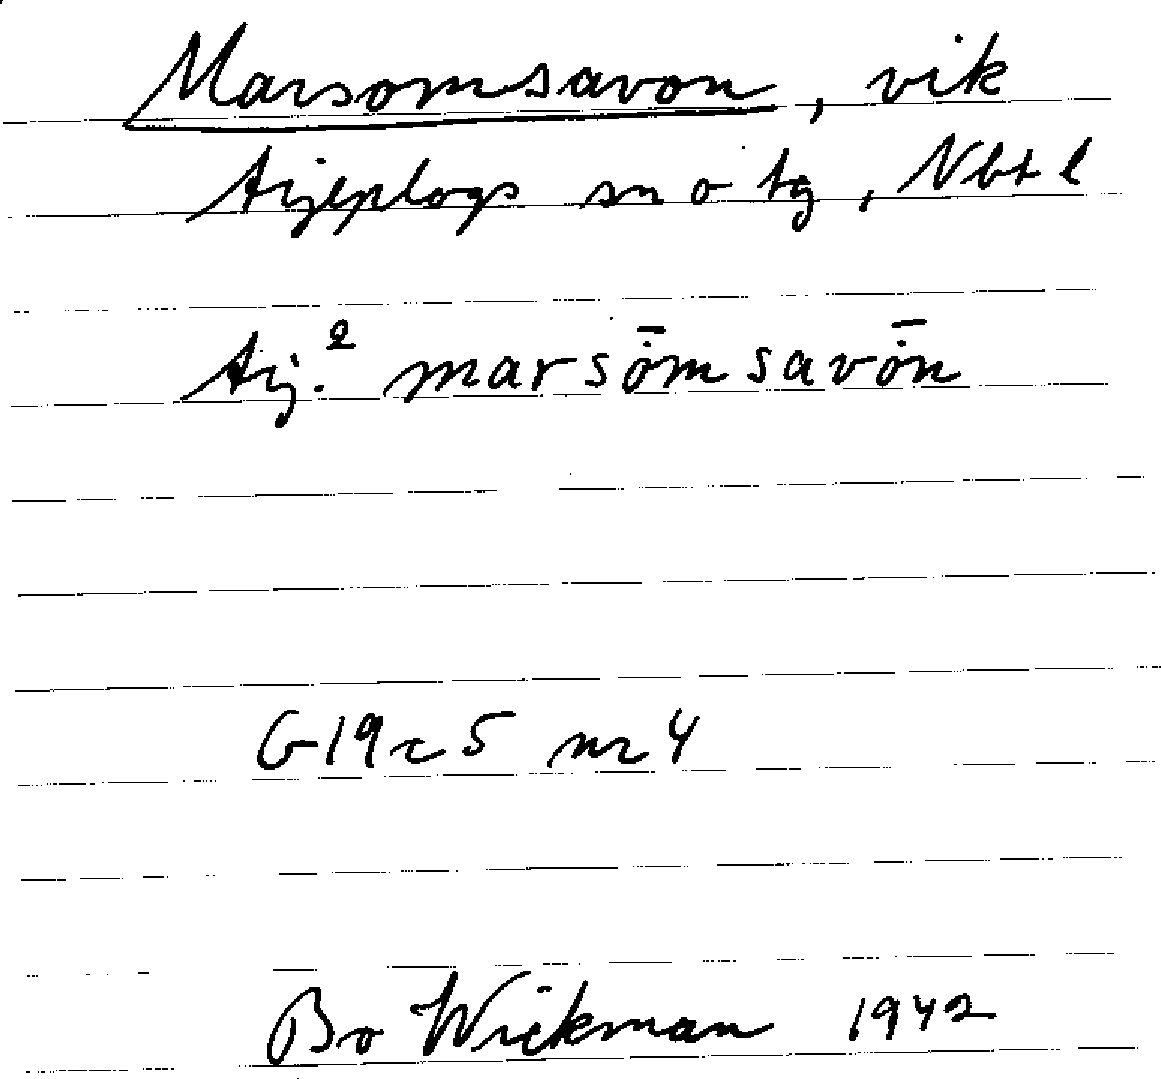 Marsomsavon, vik
Arjeplogs sn o tg, Nbt l
Arj.² marsȱmsavȱn
G19c5 nr 4
Bo Wickman 1942